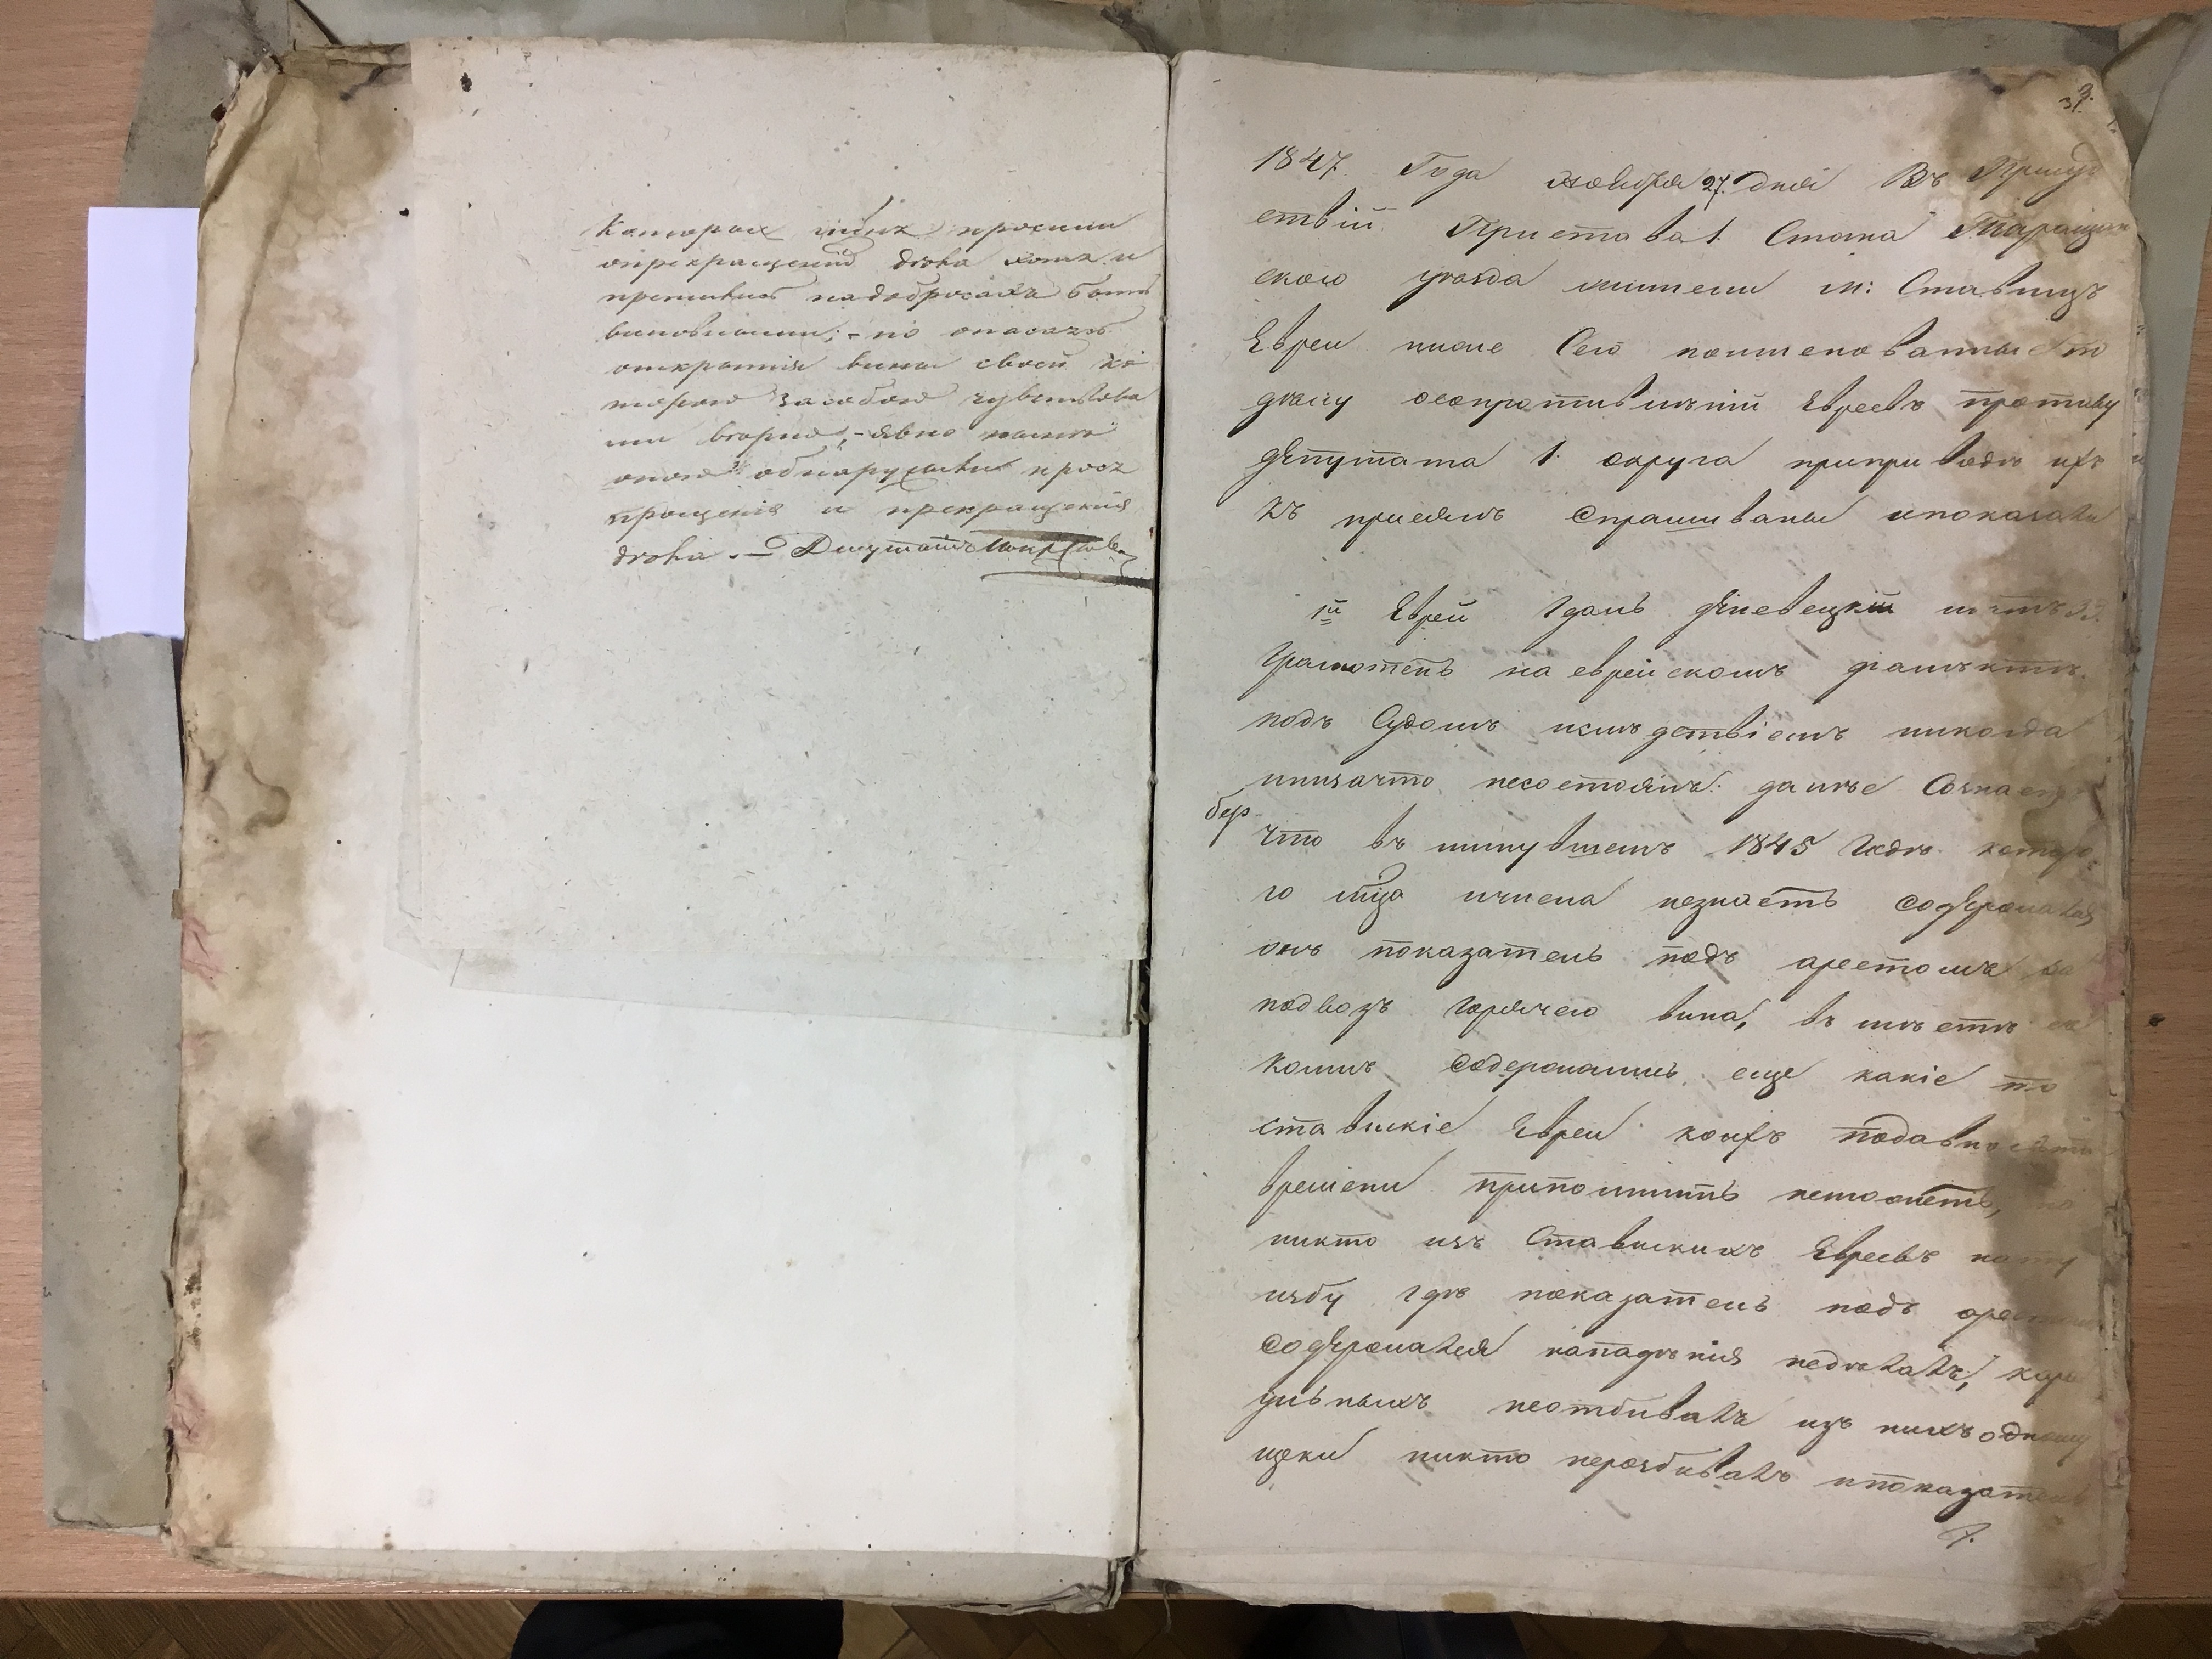 которых
опрекращеніи дѣла хотя и
виновными; - но опасаясь
открытія вины своей ко
торою за собою чувствова
ли вѣрно, - явно
оною обнаружили прося
прощенія и прекращенія
дѣла. - Депутатъ
1847. Года Ноября 27. дня Въ Присуд
ствіи Пристава 1. Стана Таращан
скаго уѣзда жители м: Ставищъ
Евреи ниже Сего поименованные по
дѣлу осопротивленіи Евреевъ противу
депутата 1. округа приприводѣ ихъ
къ присягѣ спрашиваны ипоказали
1й Еврей лѣтъ 33.
Грамотенъ на еврейскомъ діалектѣ.
подъ Судомъ ислѣдствіемъ никогда
низачто несостоялъ: далѣе Сознаетъ
бер
что въ минувшемъ 1845 Годѣ. которо
го мца ичисла незнаетъ содержался
онъ показатель подъ арестомъ за
подвозъ горячего вина, въ мѣстѣ съ
коимъ содержались еще какіе то
ставискіе Евреи коихъ подавности
времени припомнить неможетъ,
никто изъ Ставискихъ Евреевъ нату
избу гдѣ показатель подъ арестомъ
содержался нападенія недѣлалъ, кара
ульныхъ неотбивалъ изъ нихъ одному
щеки никто неразбивалъ ипоказатель